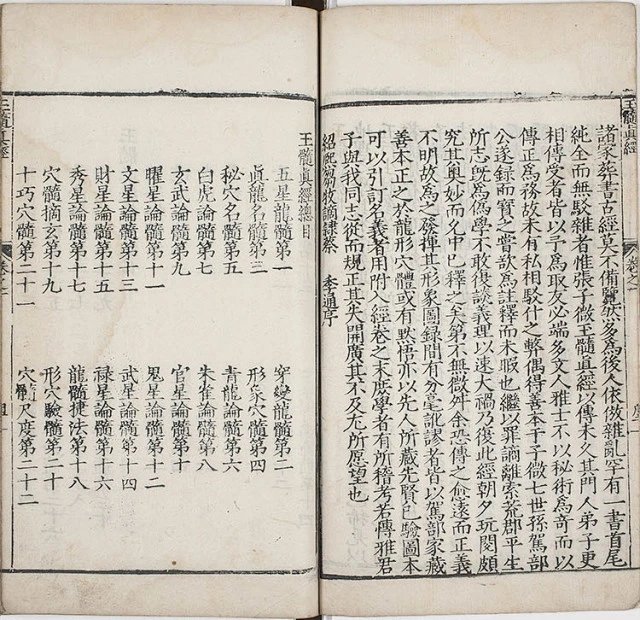 玉髓真經
諸家葬書古經莫不備覽然多為後人依倣雜亂罕有一書首尾
純全而無駁雜者惟張子微玉髓真經以傳未久其門人弟子更
相傳受者皆以予為取友必端多文人雅士不以秘術為奇而以
傳正為務故未有私相駁什之弊偶得善本于子微七世孫駕部
公遂錄而寶之嘗欲為註釋而未暇也繼以罪謫離索荒郡平生
所志既為偽學不敢復談義理以速大禍乃復此經朝夕玩閱頗
究其奧妙而名中已釋之至第不無微舛余恐傳之愈遠而正義
不明故為之發揮其形象圖錄間有分毫訛謬者皆以駕部家藏
善本正之於龍形穴體或有默悟亦以先人所藏先賢已驗圖本
可以引訂名義者用附入經卷之末庶學者有所稽考若博雅君
子與我同志從而規正其失開廣其不及尤所願望也
紹熙蒭牧謫隸蔡 季通序
玉髓真經總目
五星龍髓第一 穿變龍髓第二
真龍名髓第三 形家穴髓第四
秘穴名髓第五 青龍論髓第六
白虎論髓第七 朱雀論髓第八
玄武論髓第九 官星論髓第十
曜星論髓第十一 鬼星論髓第十二
文星論髓第十三 武星論髓第十四
財星論髓第十五 祿星論髓第十六
秀星論髓第十七 龍髓捷法第十八
穴髓摘玄第十九 形穴驗髓第二十
十巧穴髓第二十一 穴髓尺度第二十二
玉髓真經